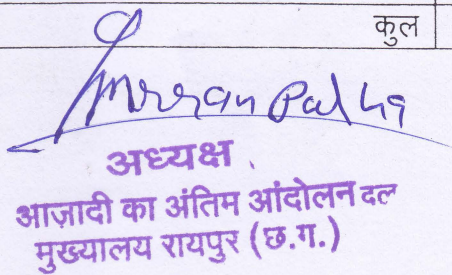 कुल
अध्यक्ष
आज़ादी का अंतिम आंदोलन दल
मुख्यालय रायपुर (छ.ग.)